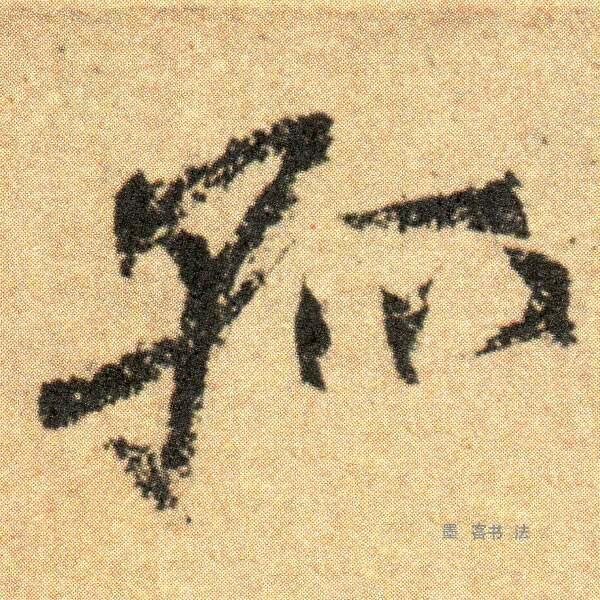 孤
墨 客书 法